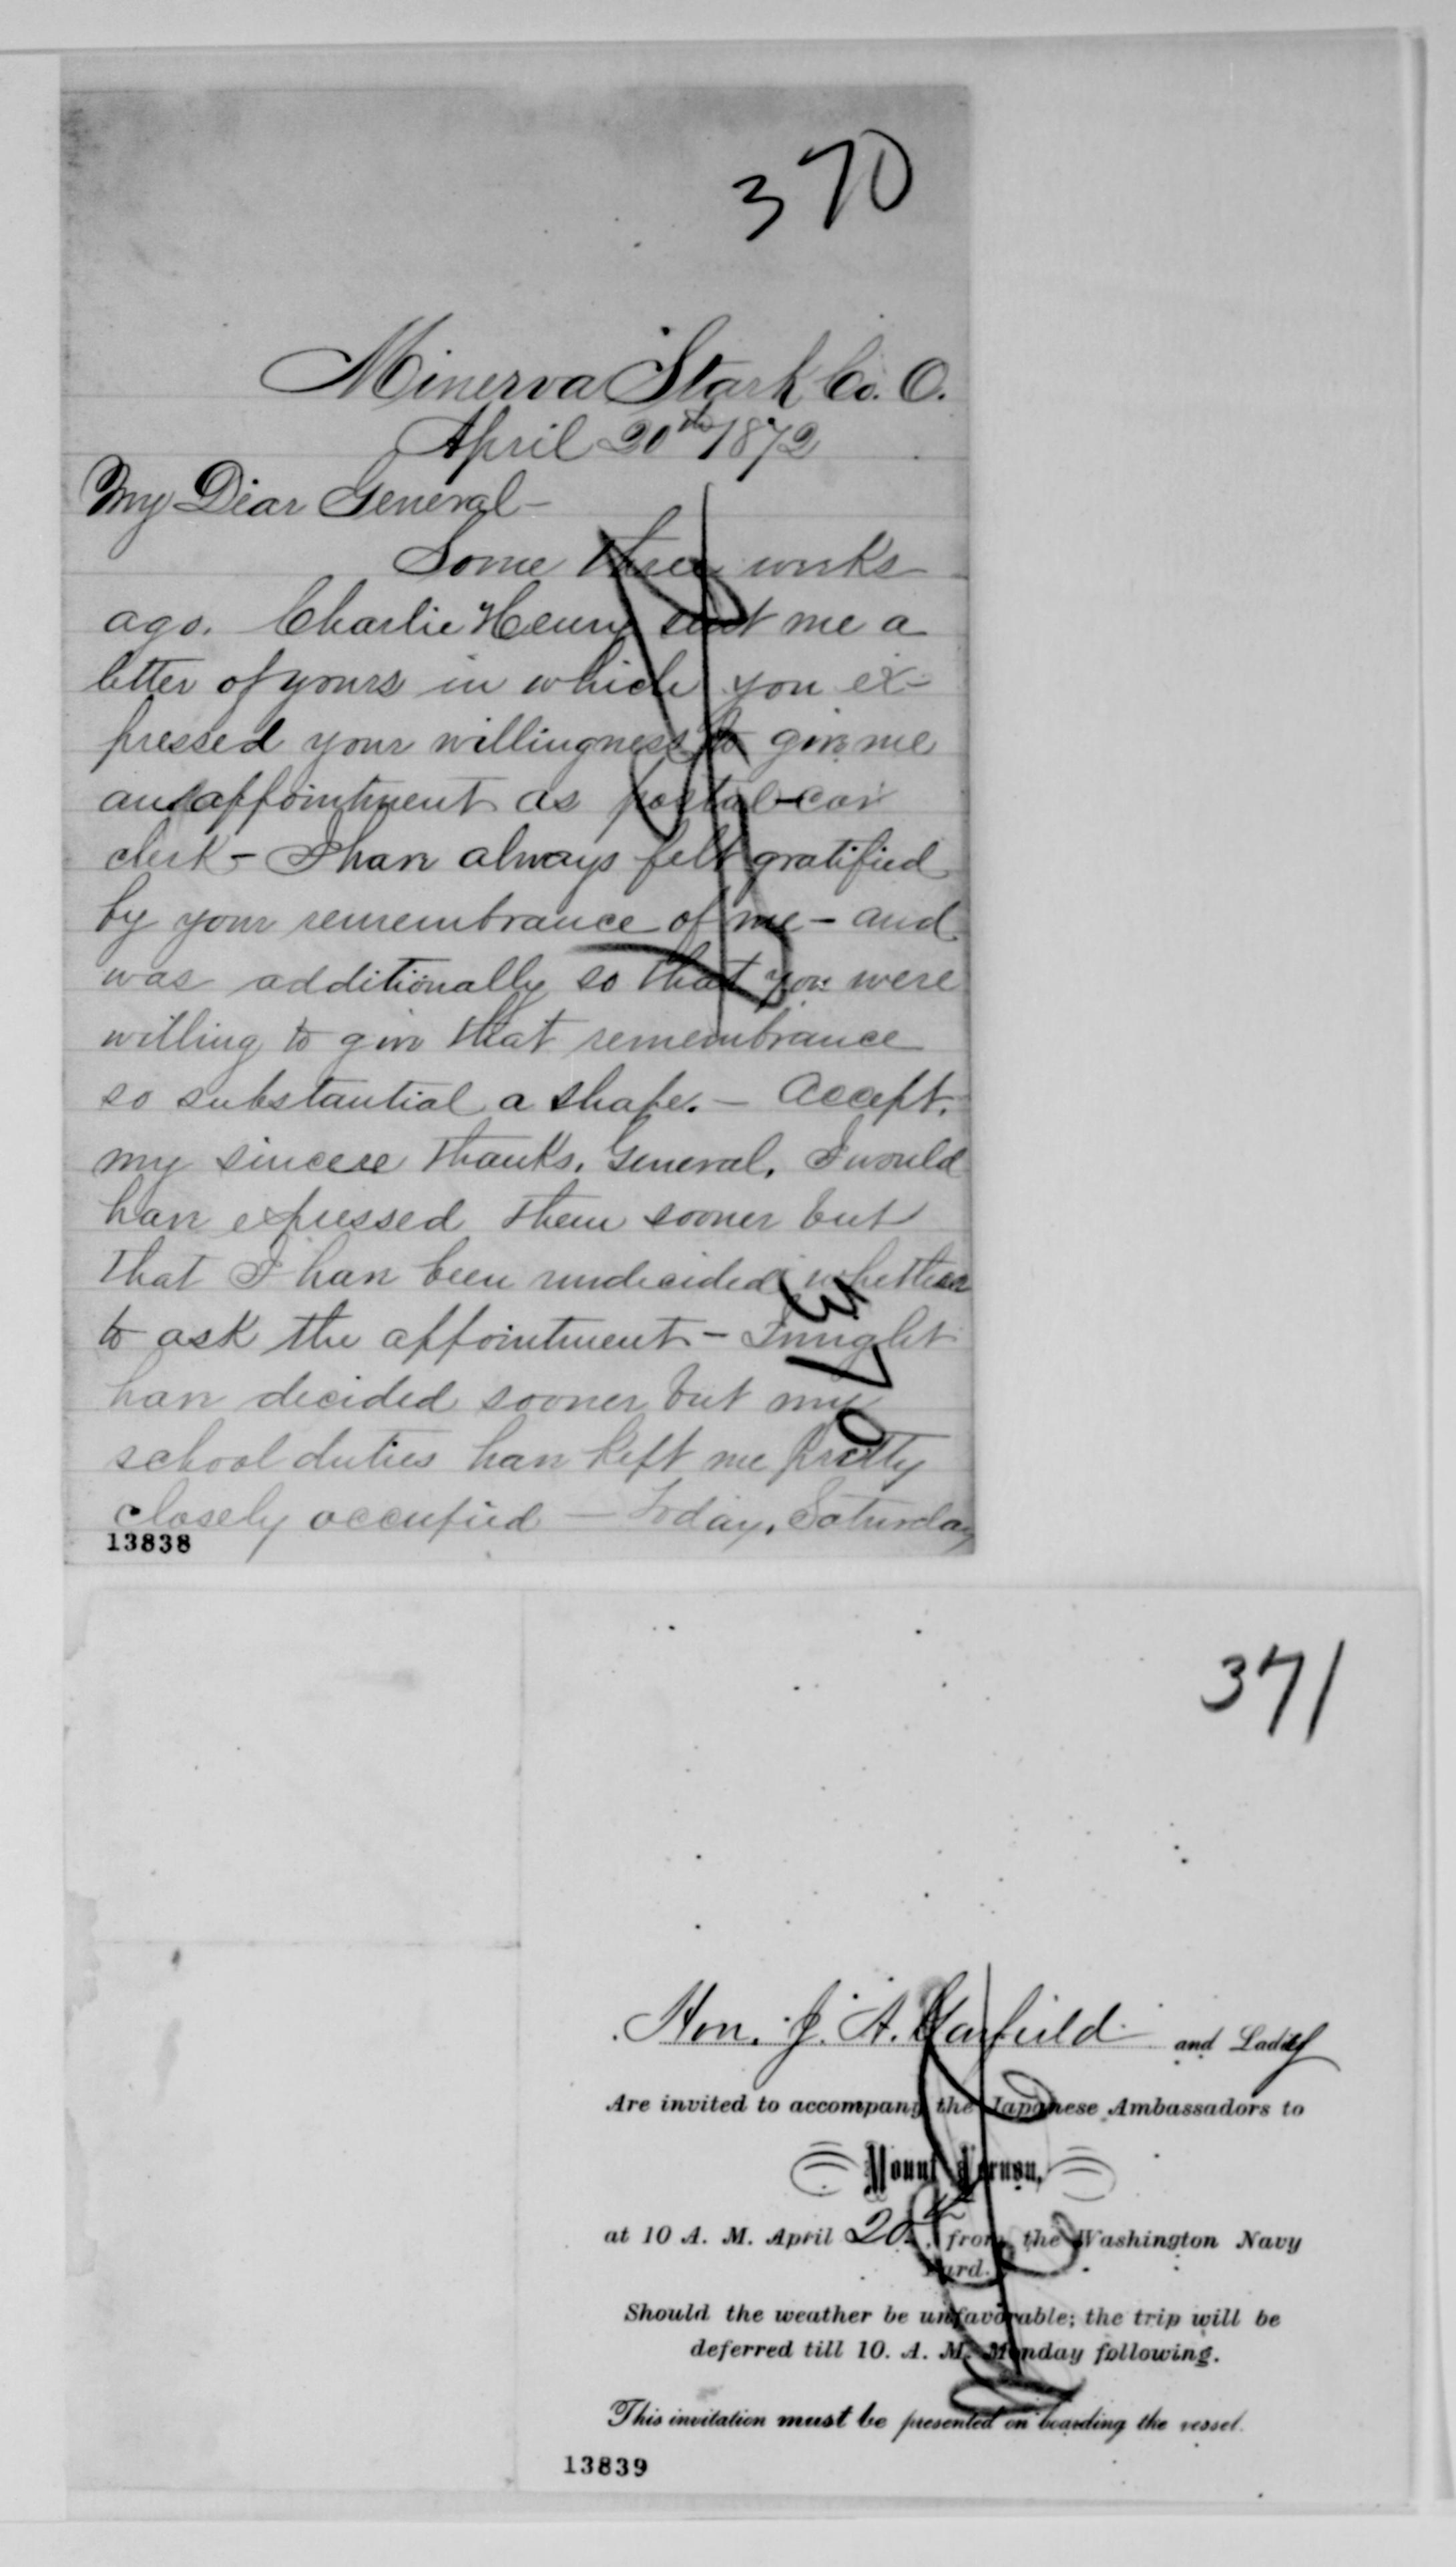 370
Minerva Stark Co. O.
April 20th 1872
My Dear General-
Some three weeks
ago. Charlie Henry sent me a
letter of yours in which you ex-
pressed your willingness to give me
an appointment as postal-car
clerk - I have always felt gratified
by your remembrance of me - and
was additionally so that you were
willing to give that remembrance
so substantial a shape. - Accept
my sincere thanks, General, I would
have expressed them sooner but
that I have been undecided whether
to ask the appointment - I might
have decided sooner but my
school duties have kept me pretty
closely occupied - Today, Saturday
370
13838
371
Hon. J. A. Garfield and Lady
Are invited to accompany the Japanese Ambassadors to
Mount Vernon,
at 10 A. M. April 20th, from the Washington Navy
Yard.
Should the weather be unfavorable; the trip will be
deferred till 10. A. M. Monday following.
This invitation must be presented on boarding the vessel.
13839